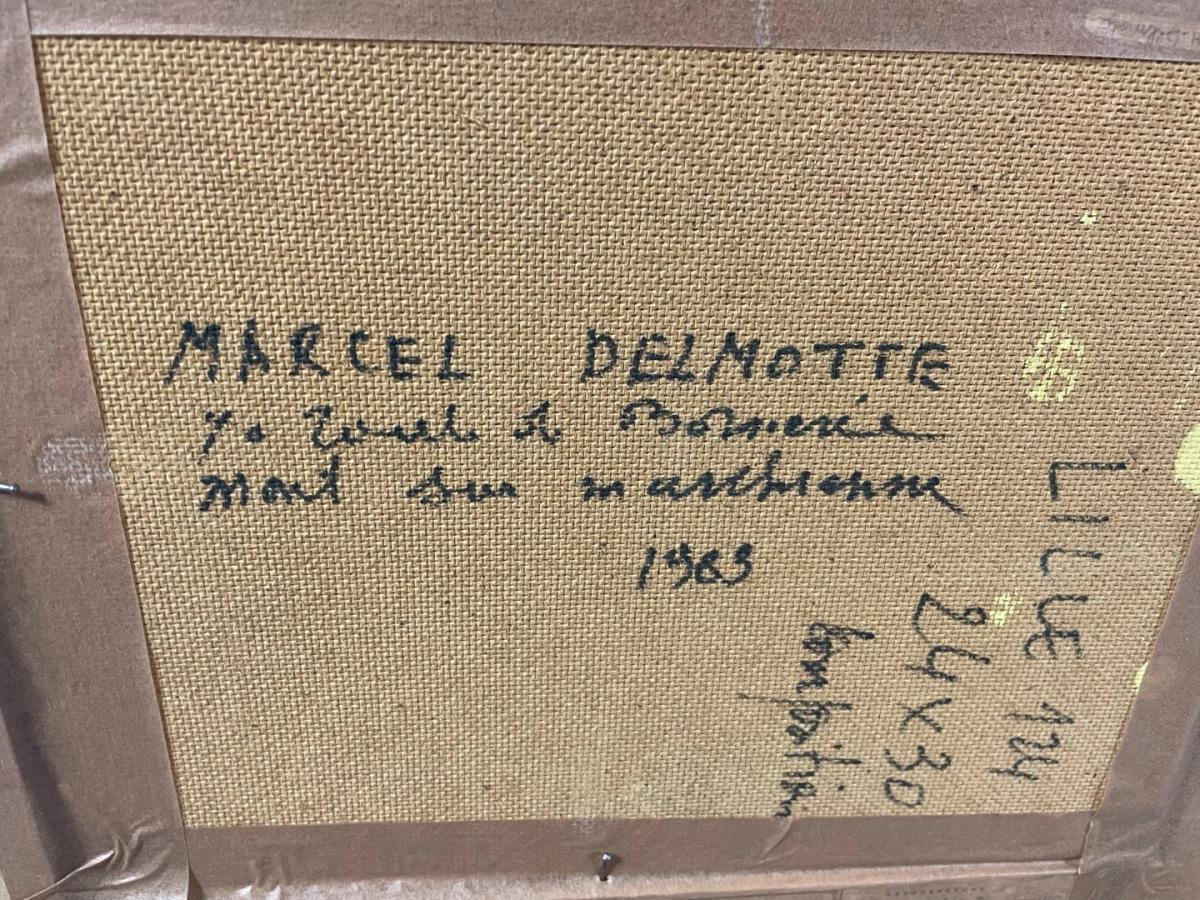 MARCEL DELMOTTE
70 Route de
mont sur marchienne
1963
LILLE 124
24 x 30
Composition